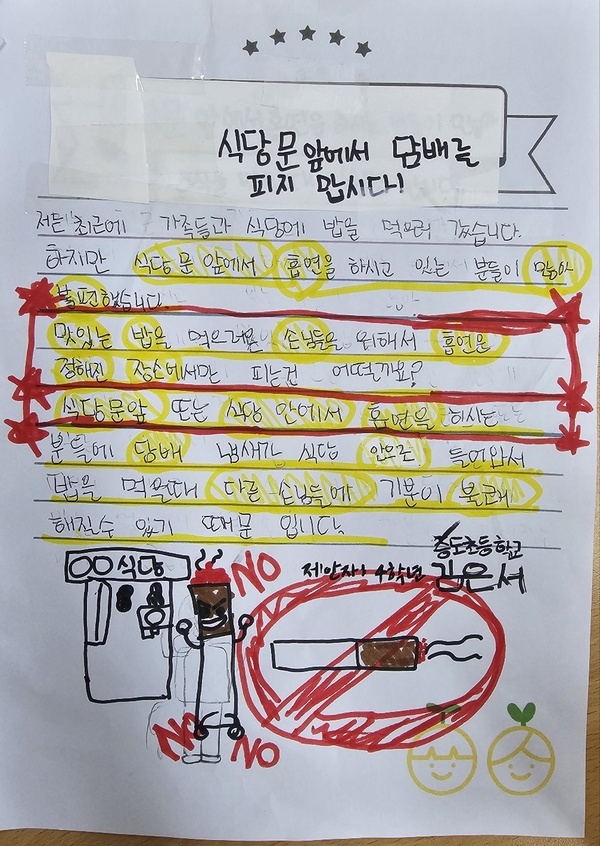 식당 문 앞에서 담배를
피지 맙시다!
저는 최근에 가족들과 식당에 밥을 먹으러 갔습니다.
하지만 식당 문 앞에서 흡연을 하시고 있는 분들이 많아
불편했습니다
맛있는 밥을 먹으러온 손님들을 위해서 흡연은
정해진 장소에서만 피는건 어떨까요?
식당문앞 또는 식당 안에서 흡연을 하시는
분들에 담배 냄새가 식당 안으로 들어와서
밥을 먹을때 다른 손님들에 기분이 불쾌
해질수 있기 때문 입니다.
증도초등학교
제안자: 4학년 김은서
○○식당
NO
NO
NO